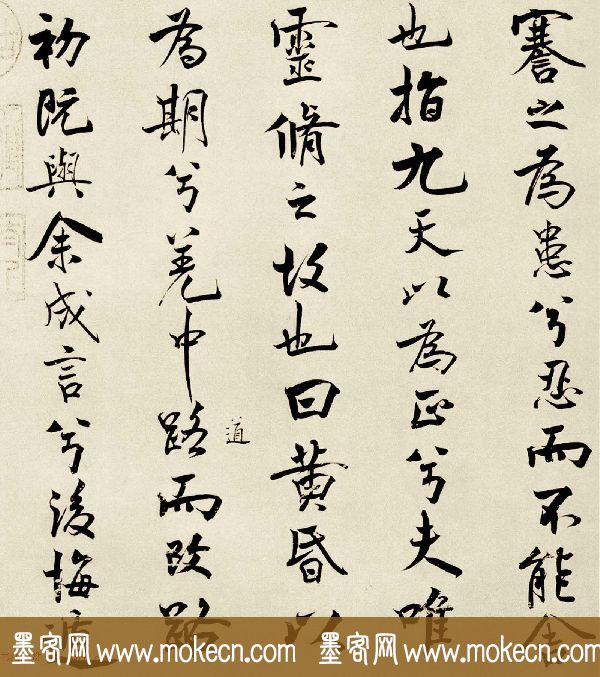 謇之為患兮忍而不能舍
也指九天以為正兮夫唯
靈脩之故也曰黃昏以
道
為期兮羌中路而改路
初既與余成言兮後悔遁
墨客网 www.mokecn.com 墨客网 www.mokecn.com